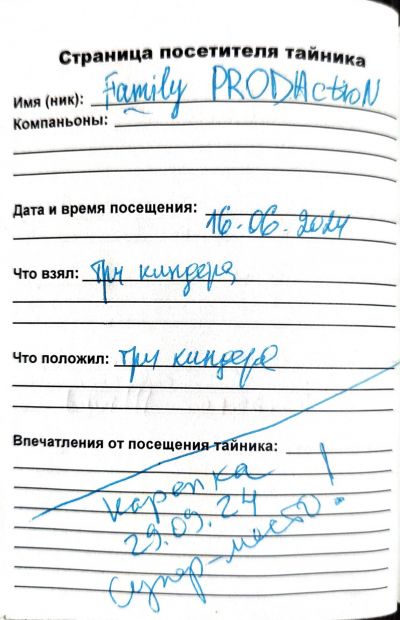 Страница посетителя тайника
Имя (ник): Family PRODActioN
Компаньоны:
Дата и время посещения:
16.06.2024
Что взял: три киндера
Что положил: три киндера
Впечатления от посещения тайника:
карапка
29.09.24
Супер-место!